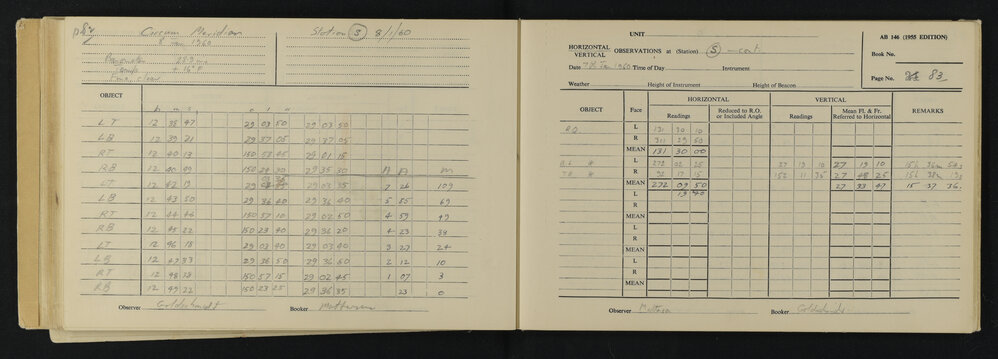 p 82
Circum Meridian
Station (S) 8/1/60
8 Jan 1960
Barometer 28.9 ins
Temp + 16° F
Fine, clear
OBJECT
h m s ° ' "
LT 12 38 47 29 03 50 29 03 50
LB 12 39 21 29 37 05 29 37 05
RT 12 40 13 150 58 45 29 01 15
RB 12 40 49 150 24 30 29 35 30 m
LT 12 42 29 29 03 35 109
LB 12 43 50 29 36 40 29 36 40 5 55 69
RT 12 44 46 150 57 10 29 02 50 4 59 49
RB 12 45 22 150 23 40 29 36 20 4 23 38
LT 12 46 18 29 03 40 29 03 40 3 27 24
LB 12 47 33 29 36 50 29 36 50 2 12 10
RT 12 48 38 150 57 15 29 02 45 1 07 3
RB 12 49 22 150 23 25 29 36 35 23 0
Observer Goldschmidt Booker
UNIT
AB 146 (1955 EDITION)
HORIZONTAL
VERTICAL
OBSERVATIONS at (Station) (S) - cont.
Book No.
Date Jan 1960 Time of Day Instrument
Page No. 83
Weather Height of Instrument Height of Beacon
OBJECT Face HORIZONTAL VERTICAL REMARKS
Readings Reduced to R.O. or Included Angle Readings Mean Fl. & Fr. Referred to Horizontal
RO L 131 30 10
R 311 29 50
MEAN 131 30 00
L 272 02 25 27 19 10 27 19 10 15h 36m
R 92 17 15 152 11 35 27 48 25 15h 38m
MEAN 272 09 50 27 33 47 15 37 36
L
R
MEAN
L
R
MEAN
L
R
MEAN
L
R
MEAN
Observer Booker